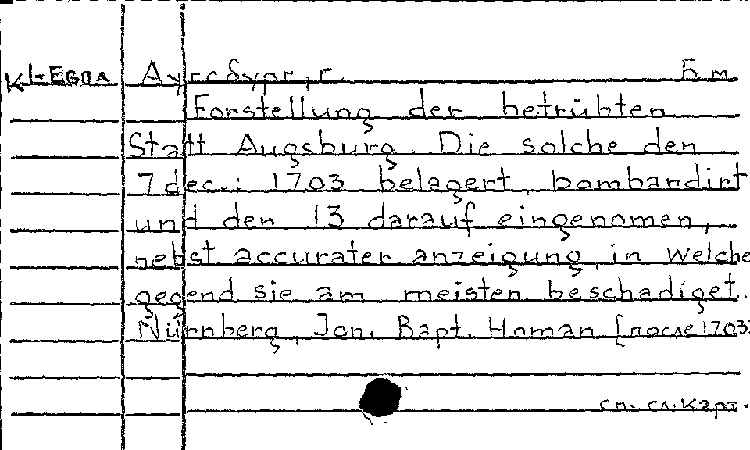 Аугсбург, г. Б м.
Forstellung der betrübten
Statt Augsburg. Die solche den
7 dec.: 1703 belagert, bombardirt
und den 13 darauf eingenomen,
nebst accurater anzeigung, in welche
gegend sie am meisten beschadiget.
Nürnberg, Joh. Bapt. Homan [после 1703]
см. сл. карт.